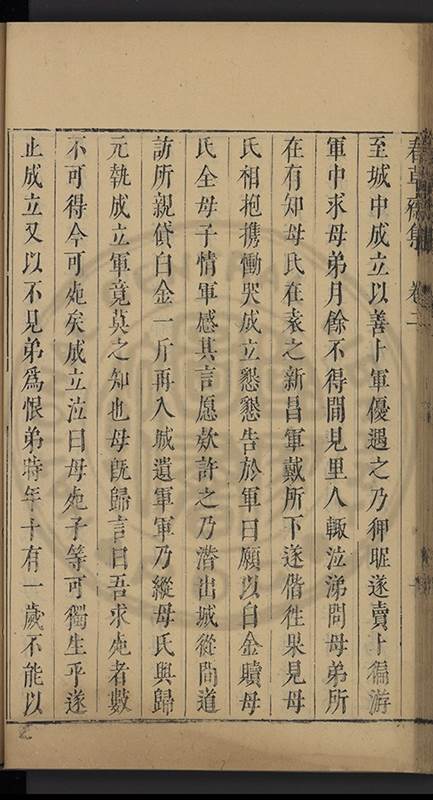 春草齋集 卷二
至城中成立以善卜軍優遇之乃狎暱遂賣卜徧游
軍中求母弟月餘不得間見里人輙泣涕問母弟所
在有知母氏在袁之新昌軍戴所下遂偕徃果見母
氏相抱携慟哭成立懇懇告於軍曰願以白金贖母
氏全母子情軍感其言愿欵許之乃潜出城從間道
訪所親貸白金一斤再入城遺軍軍乃縱母氏與歸
元執成立軍竟莫之知也母旣歸言曰吾求死者數
不可得今可死矣成立泣曰母死子等可獨生乎遂
止成立又以不見弟爲恨弟時年十有一歲不能以